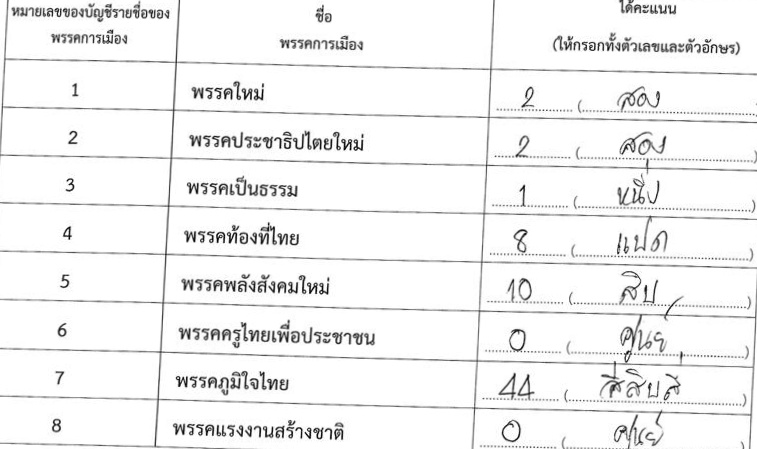 หมายเลขของบัญชีรายชื่อของ ชื่อ ได้คะแนน
พรรคการเมือง พรรคการเมือง (ให้กรอกทั้งตัวเลขและตัวอักษร)
1 พรรคใหม่ 2 (สอง)
2 พรรคประชาธิปไตยใหม่ 2 (สอง)
3 พรรคเป็นธรรม 1 (หนึ่ง)
4 พรรคท้องที่ไทย 8 (แปด)
5 พรรคพลังสังคมใหม่ 10 (สิบ)
6 พรรคครูไทยเพื่อประชาชน 0 (ศูนย์)
7 พรรคภูมิใจไทย 44 (สี่สิบสี่)
8 พรรคแรงงานสร้างชาติ 0 (ศูนย์)